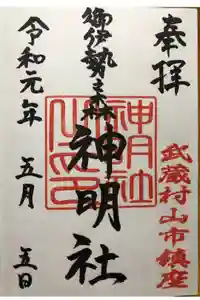 奉拝
武蔵村山市鎮座
御伊勢の森
神明社
神明社
令和元年 五月 五日